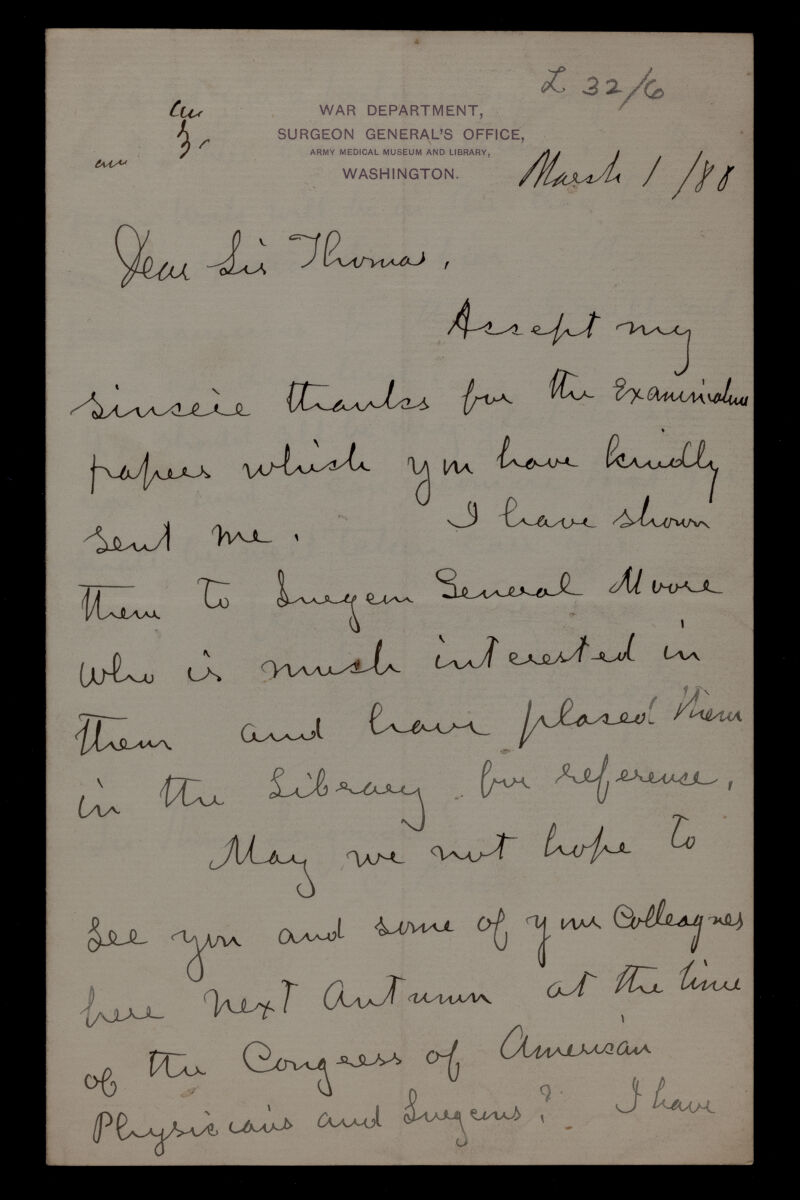 L 32/6
WAR DEPARTMENT,
SURGEON GENERAL'S OFFICE,
ARMY MEDICAL MUSEUM AND LIBRARY,
WASHINGTON.
March 1 /88
Dear Sir Thomas,
Accept my
sincere thanks for the Examination
papers which you have kindly
sent me. I have shown
them to Surgeon General Moore
who is much interested in
them and have placed them
in the Library for reference.
May we not hope to
see you and some of your Colleagues
here next Autumn at the time
of the Congress of American
Physicians and Surgeons? I have